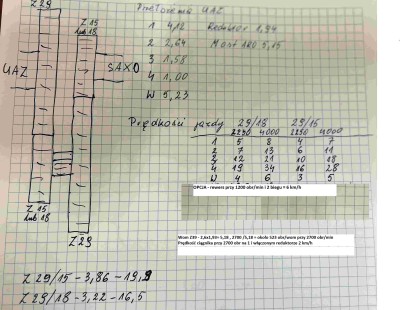 Z 29
Przełożenia UAZ
Z 15
lub 18
1 4,12 Reduktor 1,94
2 2,64 Most tył 5,15
3 1,58
4 1,00
W 5,23
UAZ
SAXO
Prędkości jazdy 29/18 29/15
2250 4000 2250 4000
1 5 8 4 7
2 7 13 6 11
3 12 21 10 18
4 19 34 16 28
W 4 6 3 5
OPCJA - rewers przy 1200 obr/min i 2 biegu = 6 km/h
Z 15
lub 18
Z 29
Wom Z29 - 2,6x1,99= 5,18 , 2700 /5,18 = około 523 obr/wom przy 2700 obr/min
Prędkość ciągnika przy 2700 obr na 1 i włączonym reduktorze 2 km/h
Z 29/15 - 3,86 - 19,9
Z 29/18 - 3,22 - 16,5